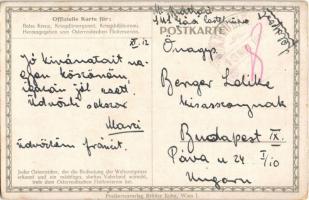 Offizielle Karte für:
Rotes Kreuz, Kriegsfürsorgeamt, Kriegshilfsbüro.
Herausgegeben vom Österreichischen Flottenverein.
POSTKARTE
XI. 12
Jó kívánatait na-
gyon köszönöm,
igazán jól esett.
Üdvözli sokszor
Marci
üdvözlöm Fránit.
Önagy.
Berger Ladike
kisasszonynak
Budapest IX.
Páva u 24 I/10
Ungarn
Jeder Österreicher, der die Bedeutung der Weltseegeltung
erkannt und ein mächtiges, starkes Vaterland wünscht,
trete dem Österreichischen Flottenverein bei.
Postkartenverlag Brüder Kohn, Wien I.